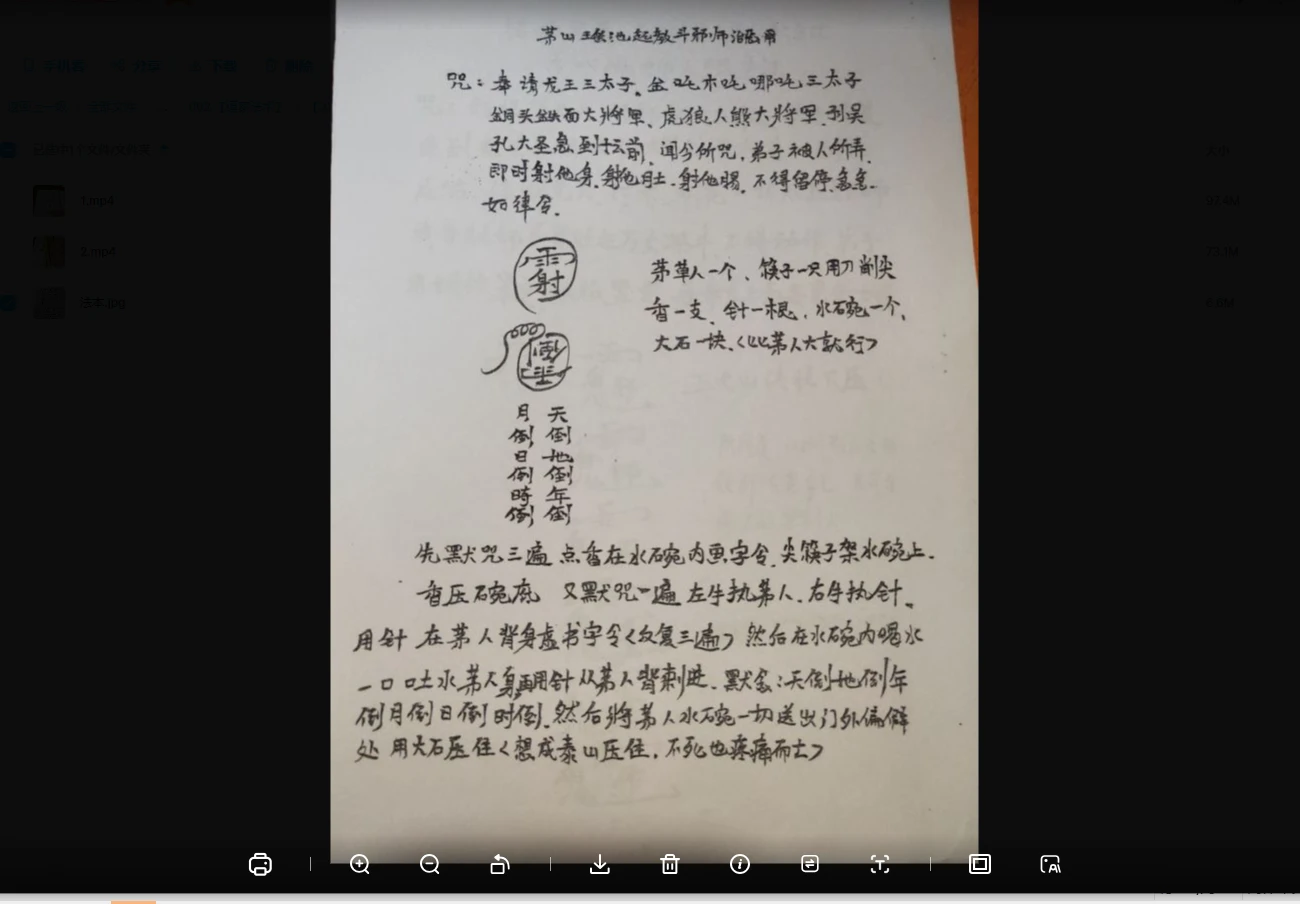 咒：奉请龙王三太子、金吒木吒哪吒三太子
铜头铁面大将军、虎狼人熊大将军、
大圣急到坛前，闻兮所咒，弟子被人所弄，
即时射他身、射他肚、射他肠，不得留停，急急
如律令．
雷
射
倒
天倒地倒年倒
月倒日倒時倒
茅草人一个、筷子一只用刀削尖
香一支、针一根，水碗一个，
大石一块、〈比茅人大就行〉
先默咒三遍 点香在水碗内画字令，尖筷子架水碗上．
香压碗底 又默咒一遍 左手执茅人、右手执针、
用针 在茅人背身虚书字令〈反复三遍〉然后在水碗内喝水
一口 吐水茅人身再用针从茅人背刺进、默念：天倒地倒年
倒月倒日倒时倒、然后将茅人水碗一切送出门外偏僻
处 用大石压住〈想成泰山压住，不死也疼痛而亡〉
1.mp4
2.mp4